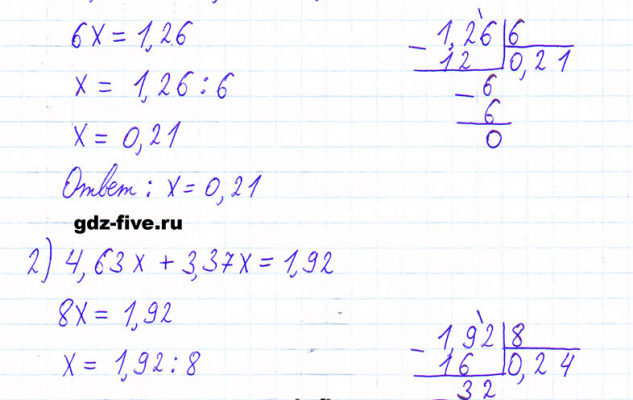 6x = 1,26
x = 1,26 : 6
x = 0,21
Ответ: x = 0,21
1,26 | 6
12 | 0,21
– 6
6
0
gdz-five.ru
2) 4,63x + 3,37x = 1,92
8x = 1,92
x = 1,92 : 8
– 1,92 | 8
16 | 0,24
32